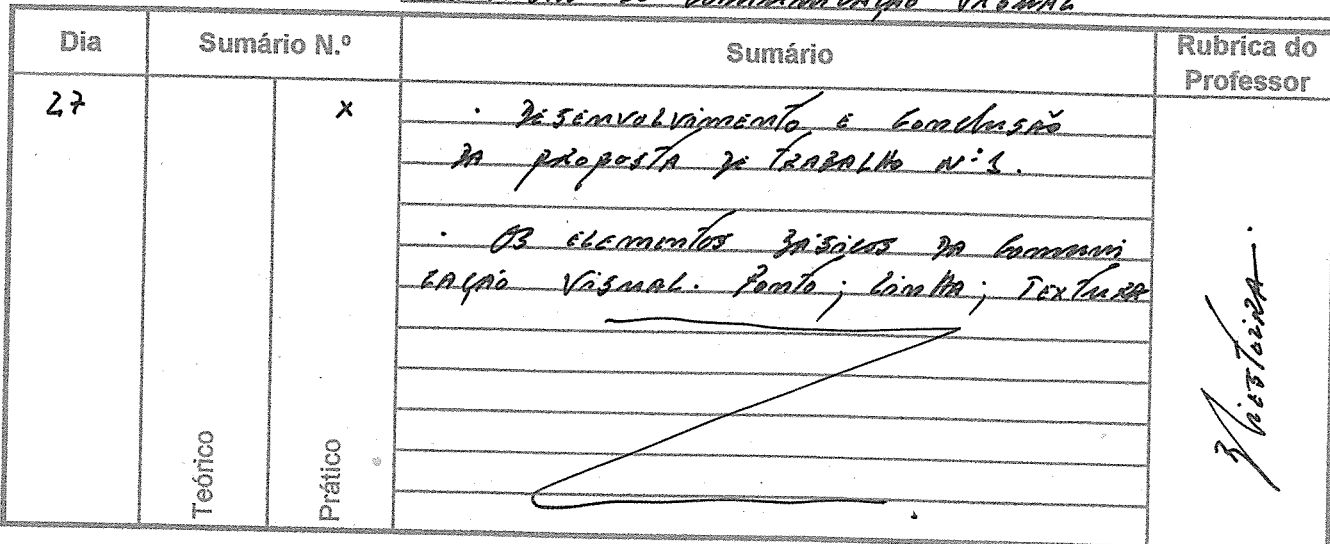 COMUNICAÇÃO VISUAL
Dia
Sumário N.º
Sumário
Rubrica do
Professor
27
x
. Desenvolvimento e Conclusão
da proposta de trabalho Nº 1.
. Os elementos básicos da Comuni
cação Visual. Ponto; Linha; Textura
Teórico
Prático